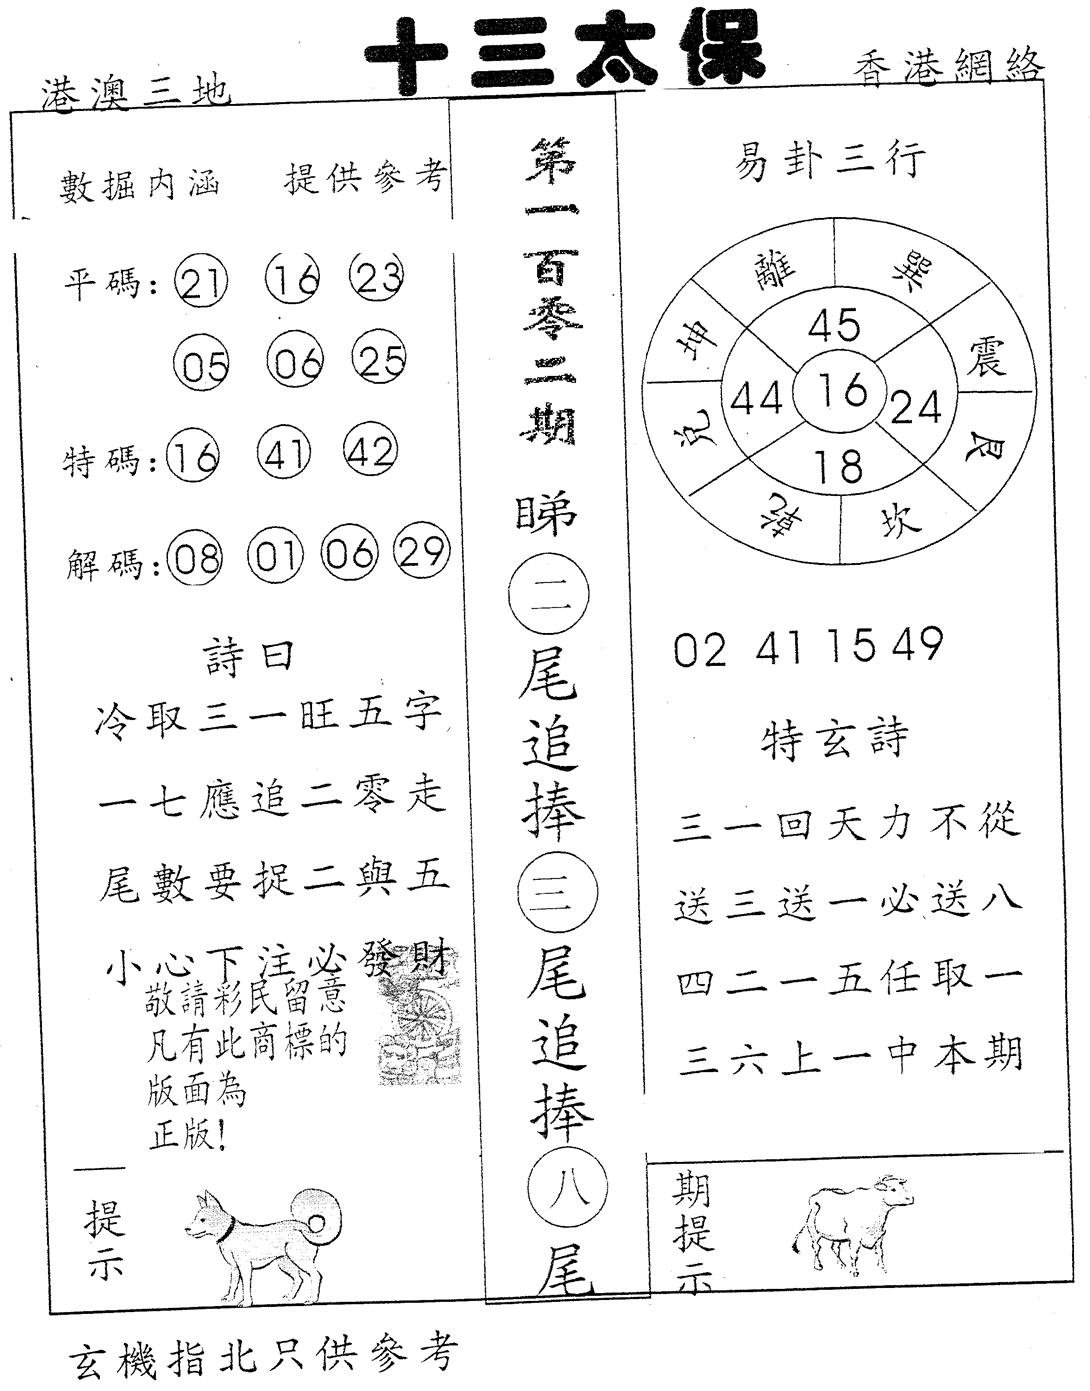 十三太保
港澳三地
香港網絡
數掘内涵 提供參考
平碼: 21 16 23
05 06 25
特碼: 16 41 42
解碼: 08 01 06 29
詩曰
冷取三一旺五字
一七應追二零走
尾數要捉二與五
小心下注必發財
敬請彩民留意
凡有此商標的
版面為
正版!
提示
第一百零二期
睇二尾追捧三尾追捧八尾
易卦三行
離 巽
坤 震
兌 艮
乾 坎
45
44 16 24
18
02 41 15 49
特玄詩
三一回天力不從
送三送一必送八
四二一五任取一
三六上一中本期
期提示
玄機指北只供參考